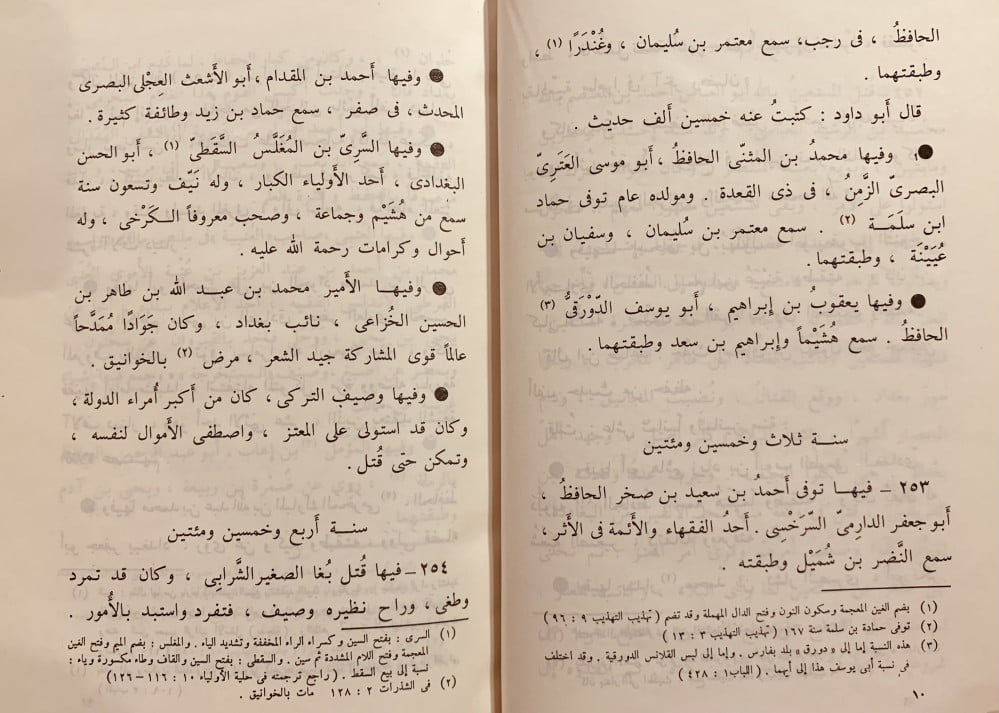 الحافظُ ، فى رجب، سمع معتمر بن سُليمان ، وغُنْدَرًا (١) ،
وطبقتهما .
قال أبو داود : كتبتُ عنه خمسين ألف حديث .
● وفيها محمدُ بن المثنّى الحافظُ ، أبو موسى العَنَزِىّ
البصرىّ الزَّمِنُ ، فى ذى القعدة . ومولده عام توفى حماد
ابن سلَمَة (٢) . سمع معتمر بن سُليمان ، وسفيان بن
عُيَيْنَة ، وطبقتهما .
● وفيها يعقوبُ بن إبراهيم ، أبو يوسف الدّوْرَقىُّ (٣)
الحافظُ . سمع هُشَيْماً وإبراهيم بن سعد وطبقتهما .
سنة ثلاث وخمسين ومئتين
٢٥٣ – فيها توفى أحمدُ بن سعيد بن صخر الحافظُ ،
أبو جعفر الدارمىّ السّرَخْسِى . أحدُ الفقهاء والأئمة فى الأثر ،
سمع النَّضر بن شُمَيْل وطبقته .
(١) بضم الغين المعجمة وسكون النون وفتح الدال المهملة وقد تضم ( تهذيب التهذيب ٩ : ٩٦ )
(٢) توفى حمادة بن سلمة سنة ١٦٧ ( تهذيب التهذيب ٣ : ١٣ )
(٣) هذه النسبة إما إلى « دورق » بلد بفارس . وإما إلى لبس القلانس الدورقية . وقد اختلف
فى نسبة أبى يوسف هذا إلى أيهما . ( اللباب ١ : ٤٢٨ )
١٠
● وفيها أحمد بن المقدام ، أبو الأَشعث العِجْلى البصرى
المحدث ، فى صفر ، سمع حماد بن زيد وطائفة كثيرة .
● وفيها السَّرِىّ بن المُغَلَّسُ السَّقَطىّ (١) ، أبو الحسن
البغدادى ، أحد الأَولياء الكبار ، وله نَيّف وتسعون سنة
سمع من هُشَيْم وجماعة ، وصحب معروفاً الكَرْخى ، وله
أحوال وكرامات رحمة الله عليه .
● وفيها الأَمير محمد بن عبد الله بن طاهر بن
الحسين الخُزاعى ، نائب بغداد ، وكان جَوَادًا مُمَدَّحاً
عالماً قوى المشاركة جيد الشعر ، مرض (٢) بالخوانيق .
● وفيها وصيف التركى ، كان من أكبر أُمراء الدولة ،
وكان قد استولى على المعتز ، واصطفى الأَموال لنفسه ،
وتمكن حتى قُتل .
سنة أربع وخمسين ومئتين
٢٥٤ – فيها قُتل بُغا الصغير الشَّرابى ، وكان قد تمرد
وطغى ، وراح نظيره وصيف ، فتفرد واستبد بالأُمور .
(١) السرى : بفتح السين وكسراء الراء المخففة وتشديد الياء . والمغلس : بضم الميم وفتح الغين
المعجمة وفتح اللام المشددة ثم سين . والسقطى : بفتح السين والقاف وطاء مكسورة وياء :
نسبة إلى بيع السقط . ( راجع ترجمته فى حلية الأولياء ١٠ : ١١٦ – ١٢٦ )
(٢) فى الشذرات ٢ : ١٢٨ مات بالخوانيق .